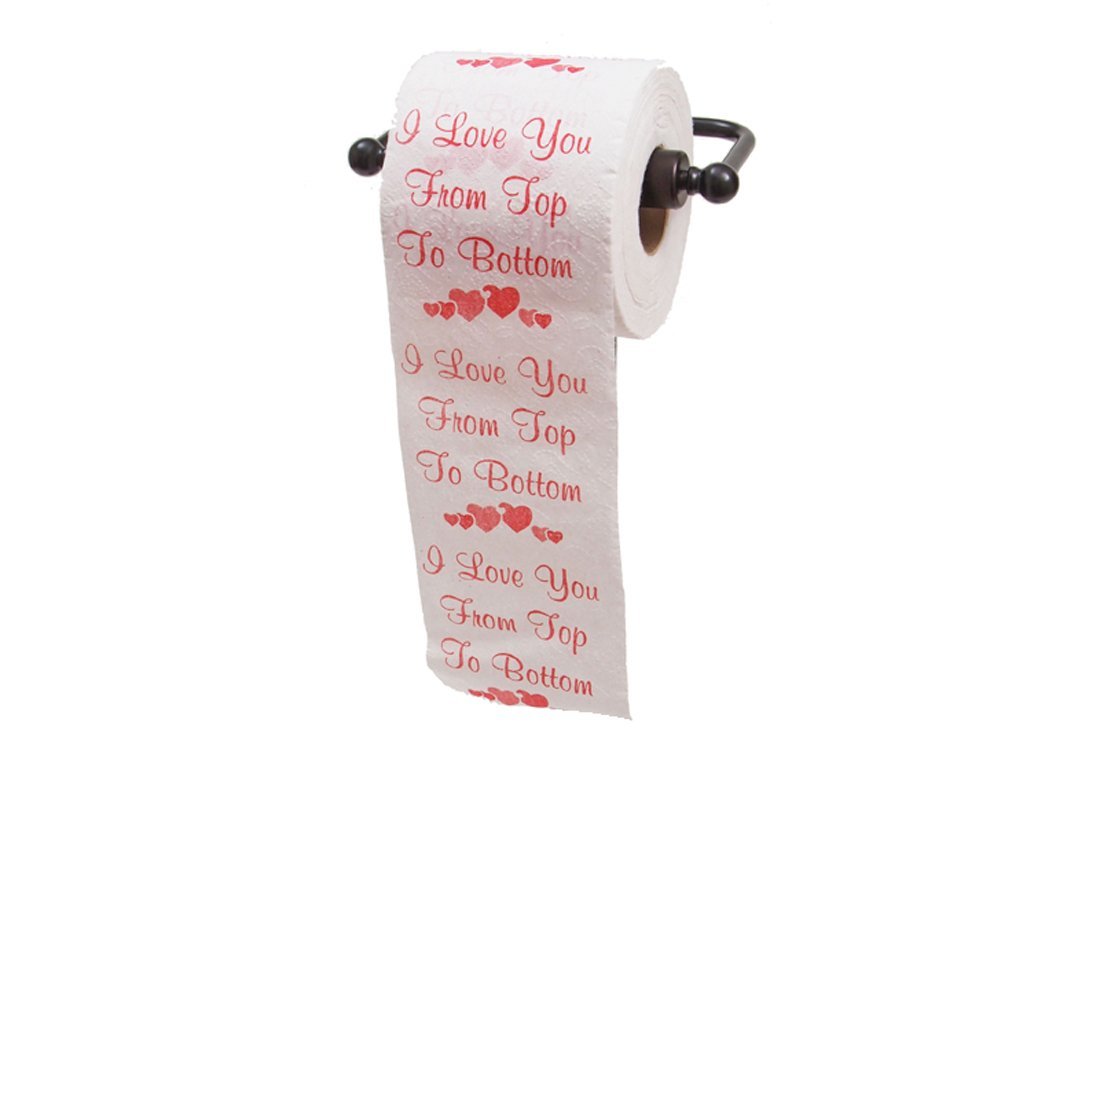 I Love You
From Top
To Bottom
I Love You
From Top
To Bottom
I Love You
From Top
To Bottom